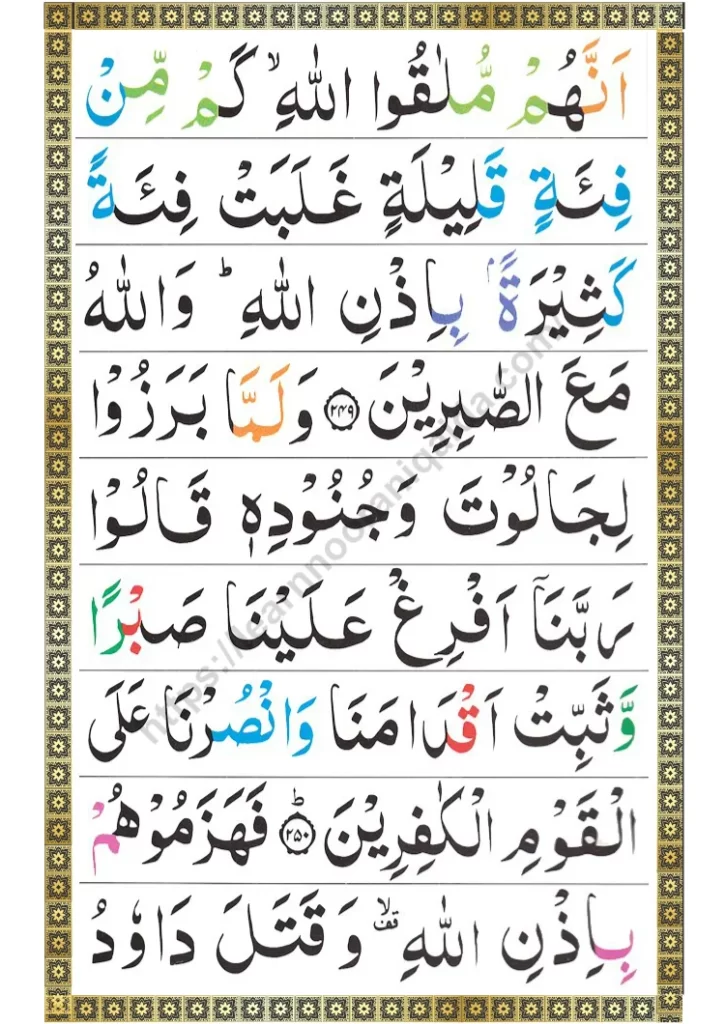 اَنَّهُمْ مُّلٰقُوا اللّٰهِ ۙ كَمْ مِّنْ
فِئَةٍ قَلِيْلَةٍ غَلَبَتْ فِئَةً
كَثِيْرَةًۢ بِاِذْنِ اللّٰهِ ؕ وَاللّٰهُ
مَعَ الصّٰبِرِيْنَ ﴿۲۴۹﴾ وَلَمَّا بَرَزُوْا
لِجَالُوْتَ وَجُنُوْدِهٖ قَالُوْا
رَبَّنَاۤ اَفْرِغْ عَلَيْنَا صَبْرًا
وَّثَبِّتْ اَقْدَامَنَا وَانْصُرْنَا عَلَى
الْقَوْمِ الْكٰفِرِيْنَ ﴿۲۵۰﴾ؕ فَهَزَمُوْهُمْ
بِاِذْنِ اللّٰهِ ۙ قف وَقَتَلَ دَاوٗدُ
https://learnnooraniqaida.com/